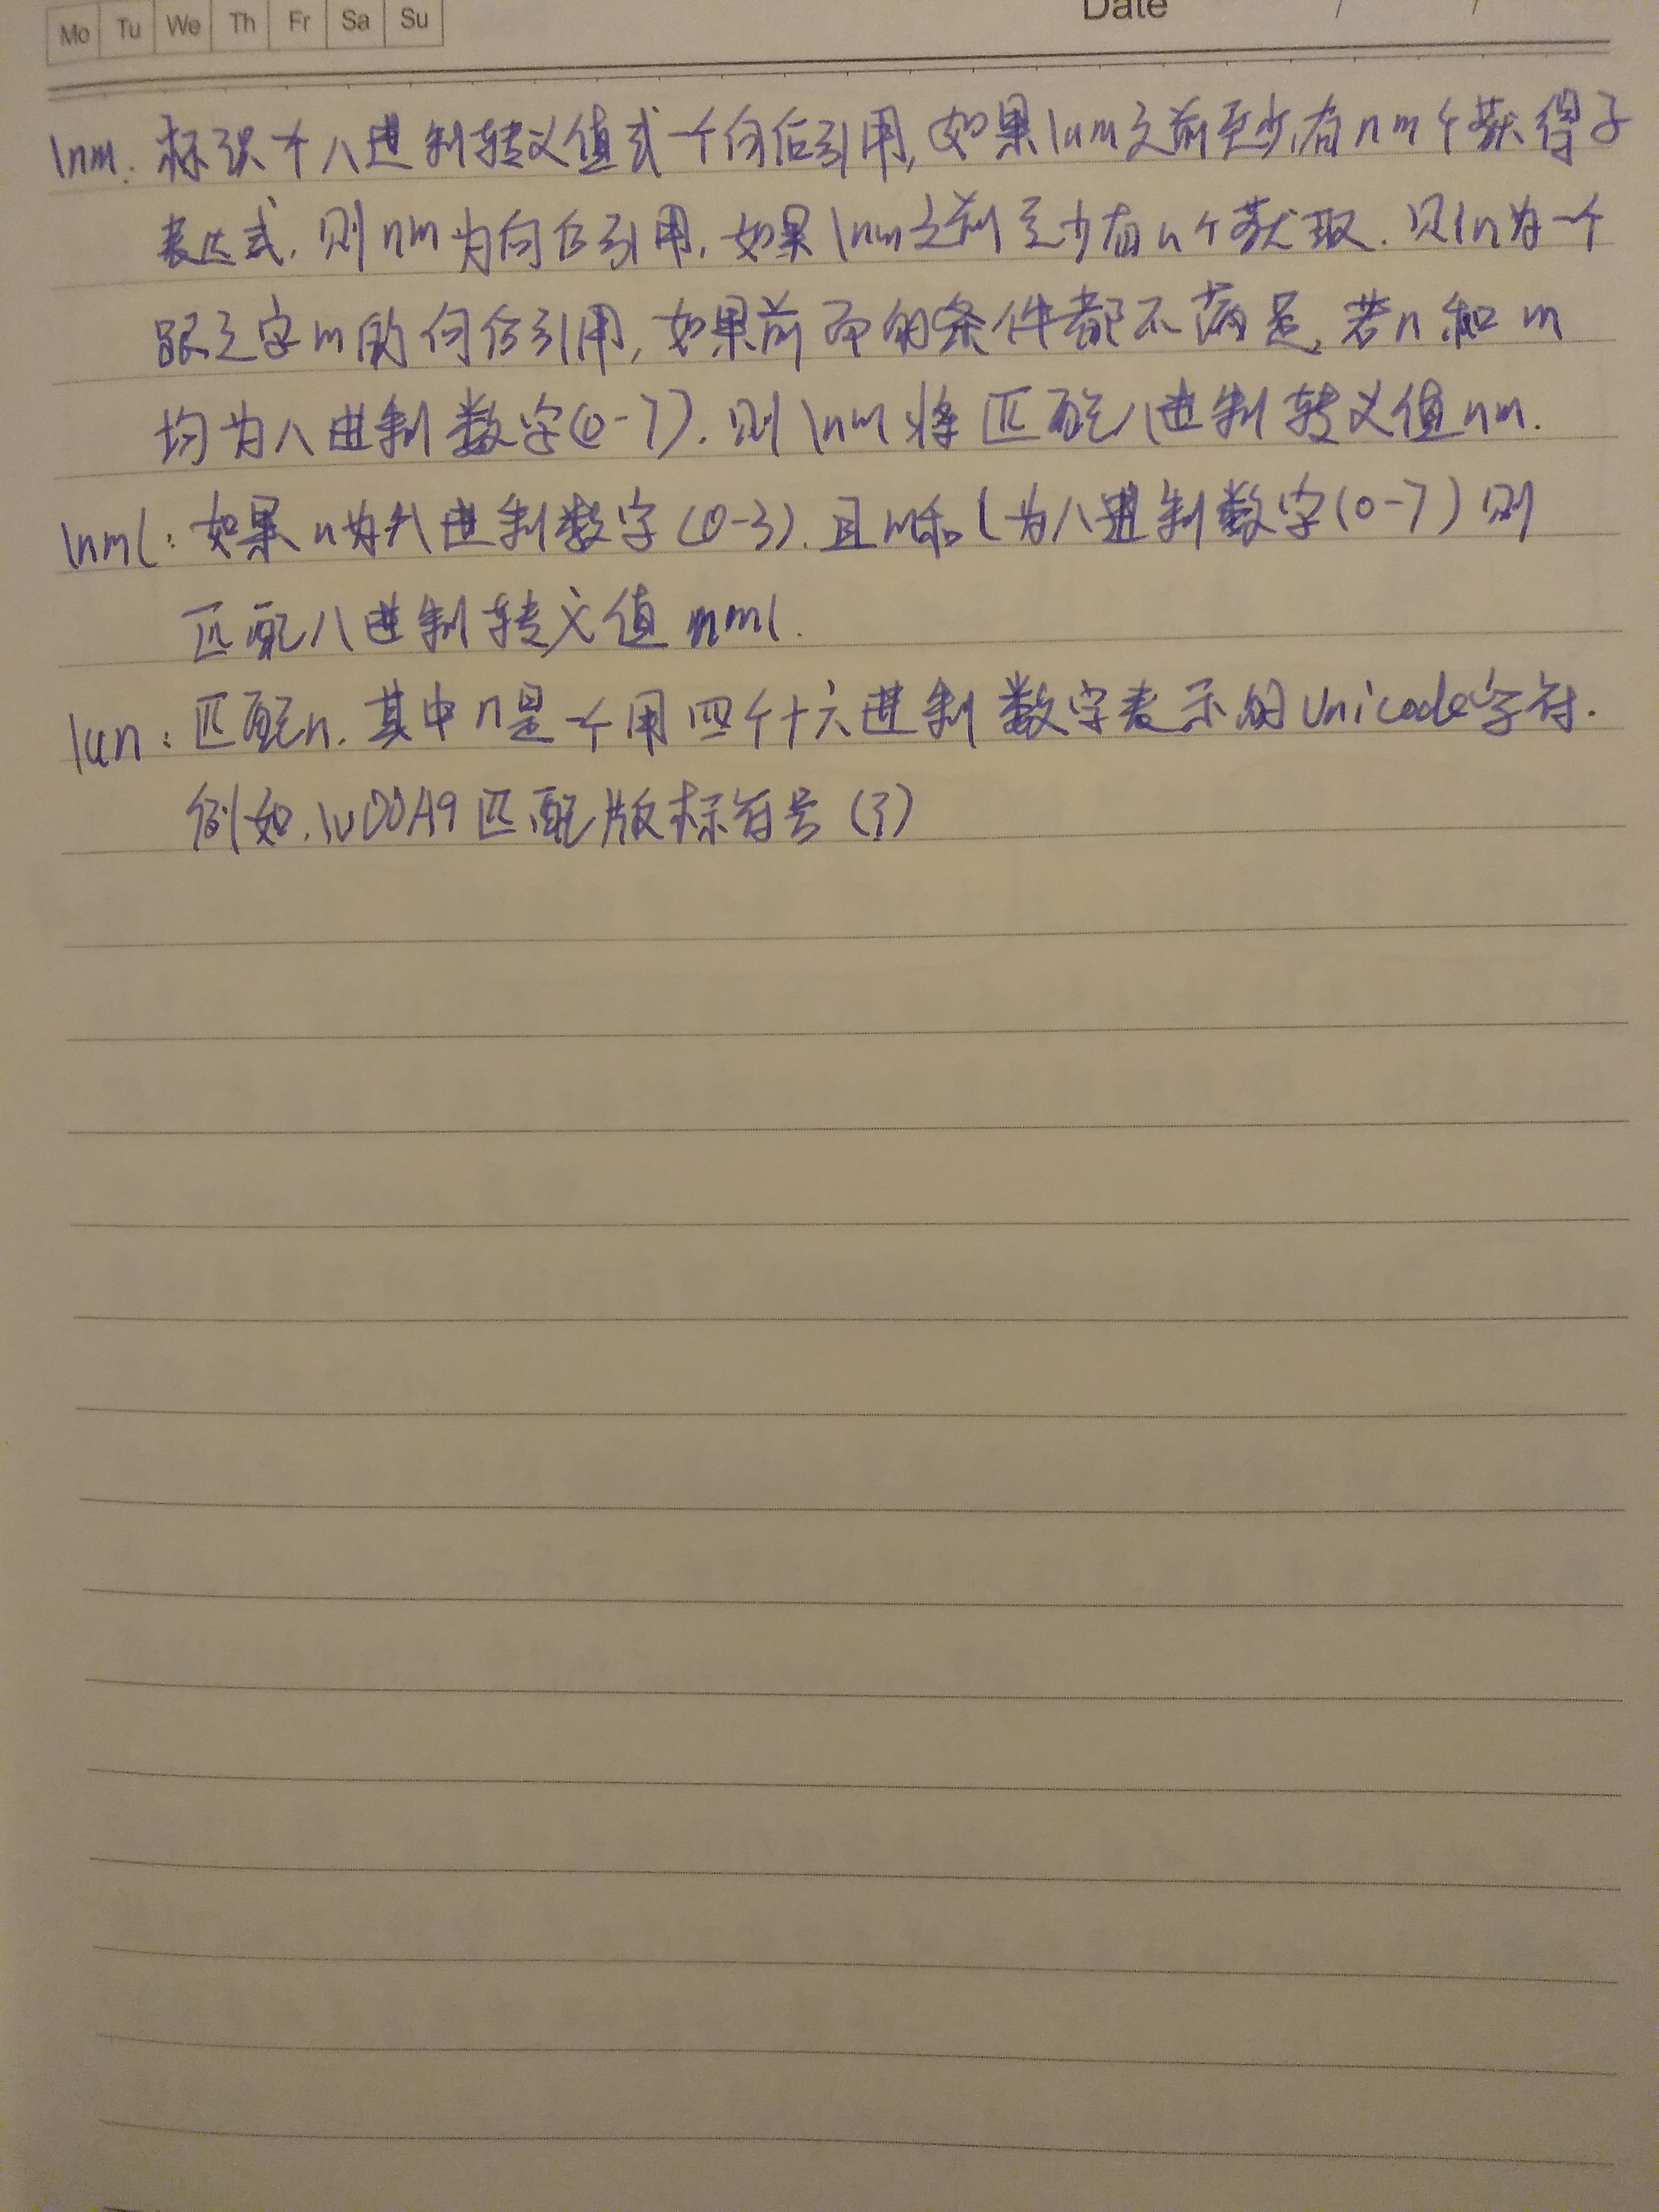 Mo Tu We Th Fr Sa Su Date / /
\nm: 标识个八进制转义值或一个向后引用,如果\nm之前至少有nm个获得子
表达式,则nm为向后引用,如果\nm之前至少有n个获取,则\n为一个
跟文字m的向后引用,如果前面的条件都不满足,若n和m
均为八进制数字(0-7),则\nm将匹配八进制转义值nm.
\nml: 如果n为八进制数字(0-3),且m和l为八进制数字(0-7)则
匹配八进制转义值nml.
\un: 匹配n,其中n是一个用四个十六进制数字表示的Unicode字符.
例如,\u00A9匹配版标符号(?)